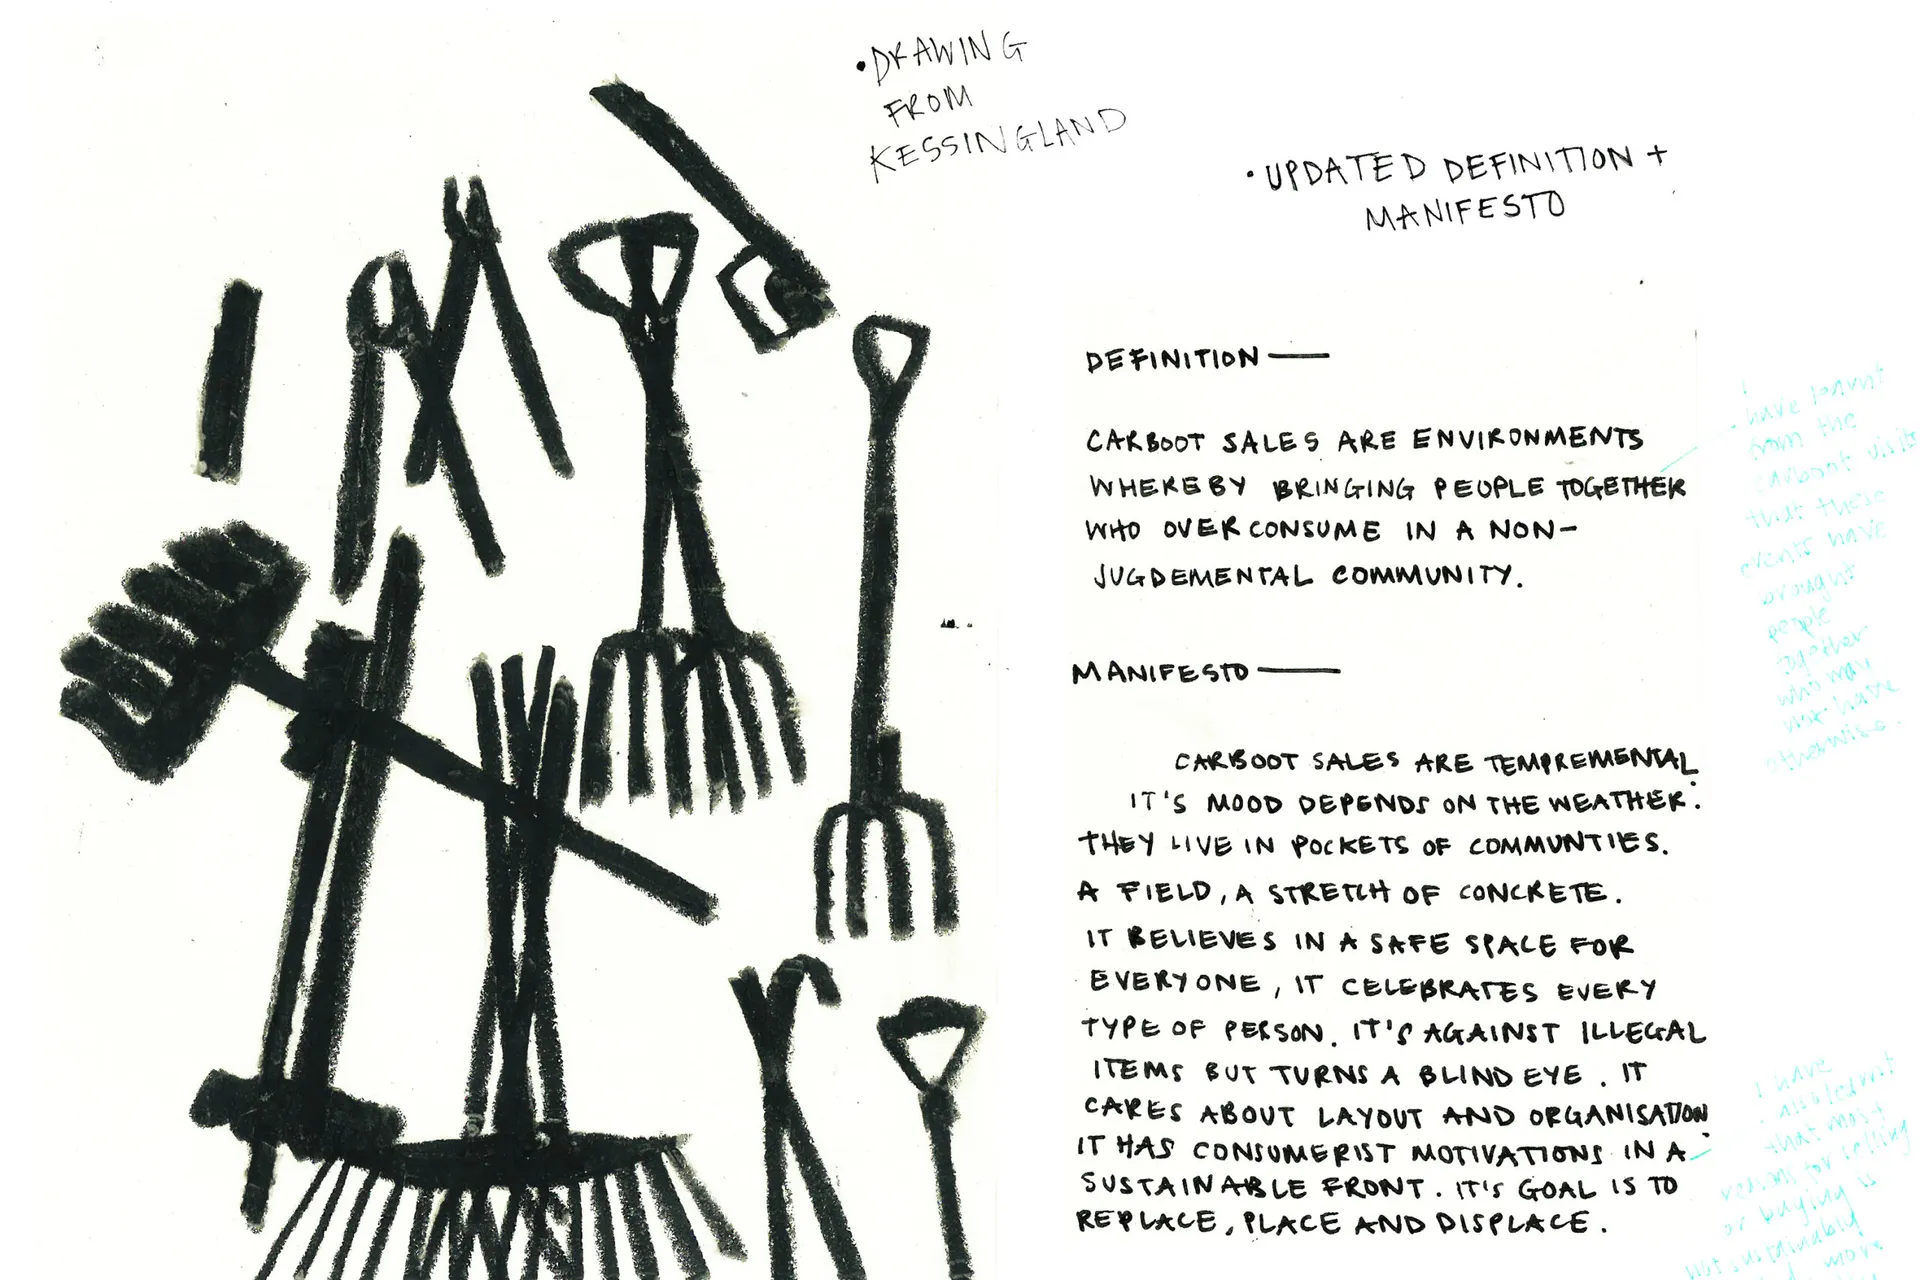 •DRAWING
FROM
KESSINGLAND
•UPDATED DEFINITION +
MANIFESTO
DEFINITION —
CARBOOT SALES ARE ENVIRONMENTS
WHEREBY BRINGING PEOPLE TOGETHER
WHO OVERCONSUME IN A NON-
JUGDEMENTAL COMMUNITY.
MANIFESTO —
CARBOOT SALES ARE TEMPREMENTAL.
IT'S MOOD DEPENDS ON THE WEATHER.
THEY LIVE IN POCKETS OF COMMUNTIES.
A FIELD, A STRETCH OF CONCRETE.
IT BELIEVES IN A SAFE SPACE FOR
EVERYONE, IT CELEBRATES EVERY
TYPE OF PERSON. IT'S AGAINST ILLEGAL
ITEMS BUT TURNS A BLIND EYE. IT
CARES ABOUT LAYOUT AND ORGANISATION.
IT HAS CONSUMERIST MOTIVATIONS IN A
SUSTAINABLE FRONT. IT'S GOAL IS TO
REPLACE, PLACE AND DISPLACE.
I
have learnt
from the
carboot visits
that these
events have
brought
people
together
who may
not have
otherwise.
I have
also learnt
that most
reasons for selling
or buying is
not sustainably
more